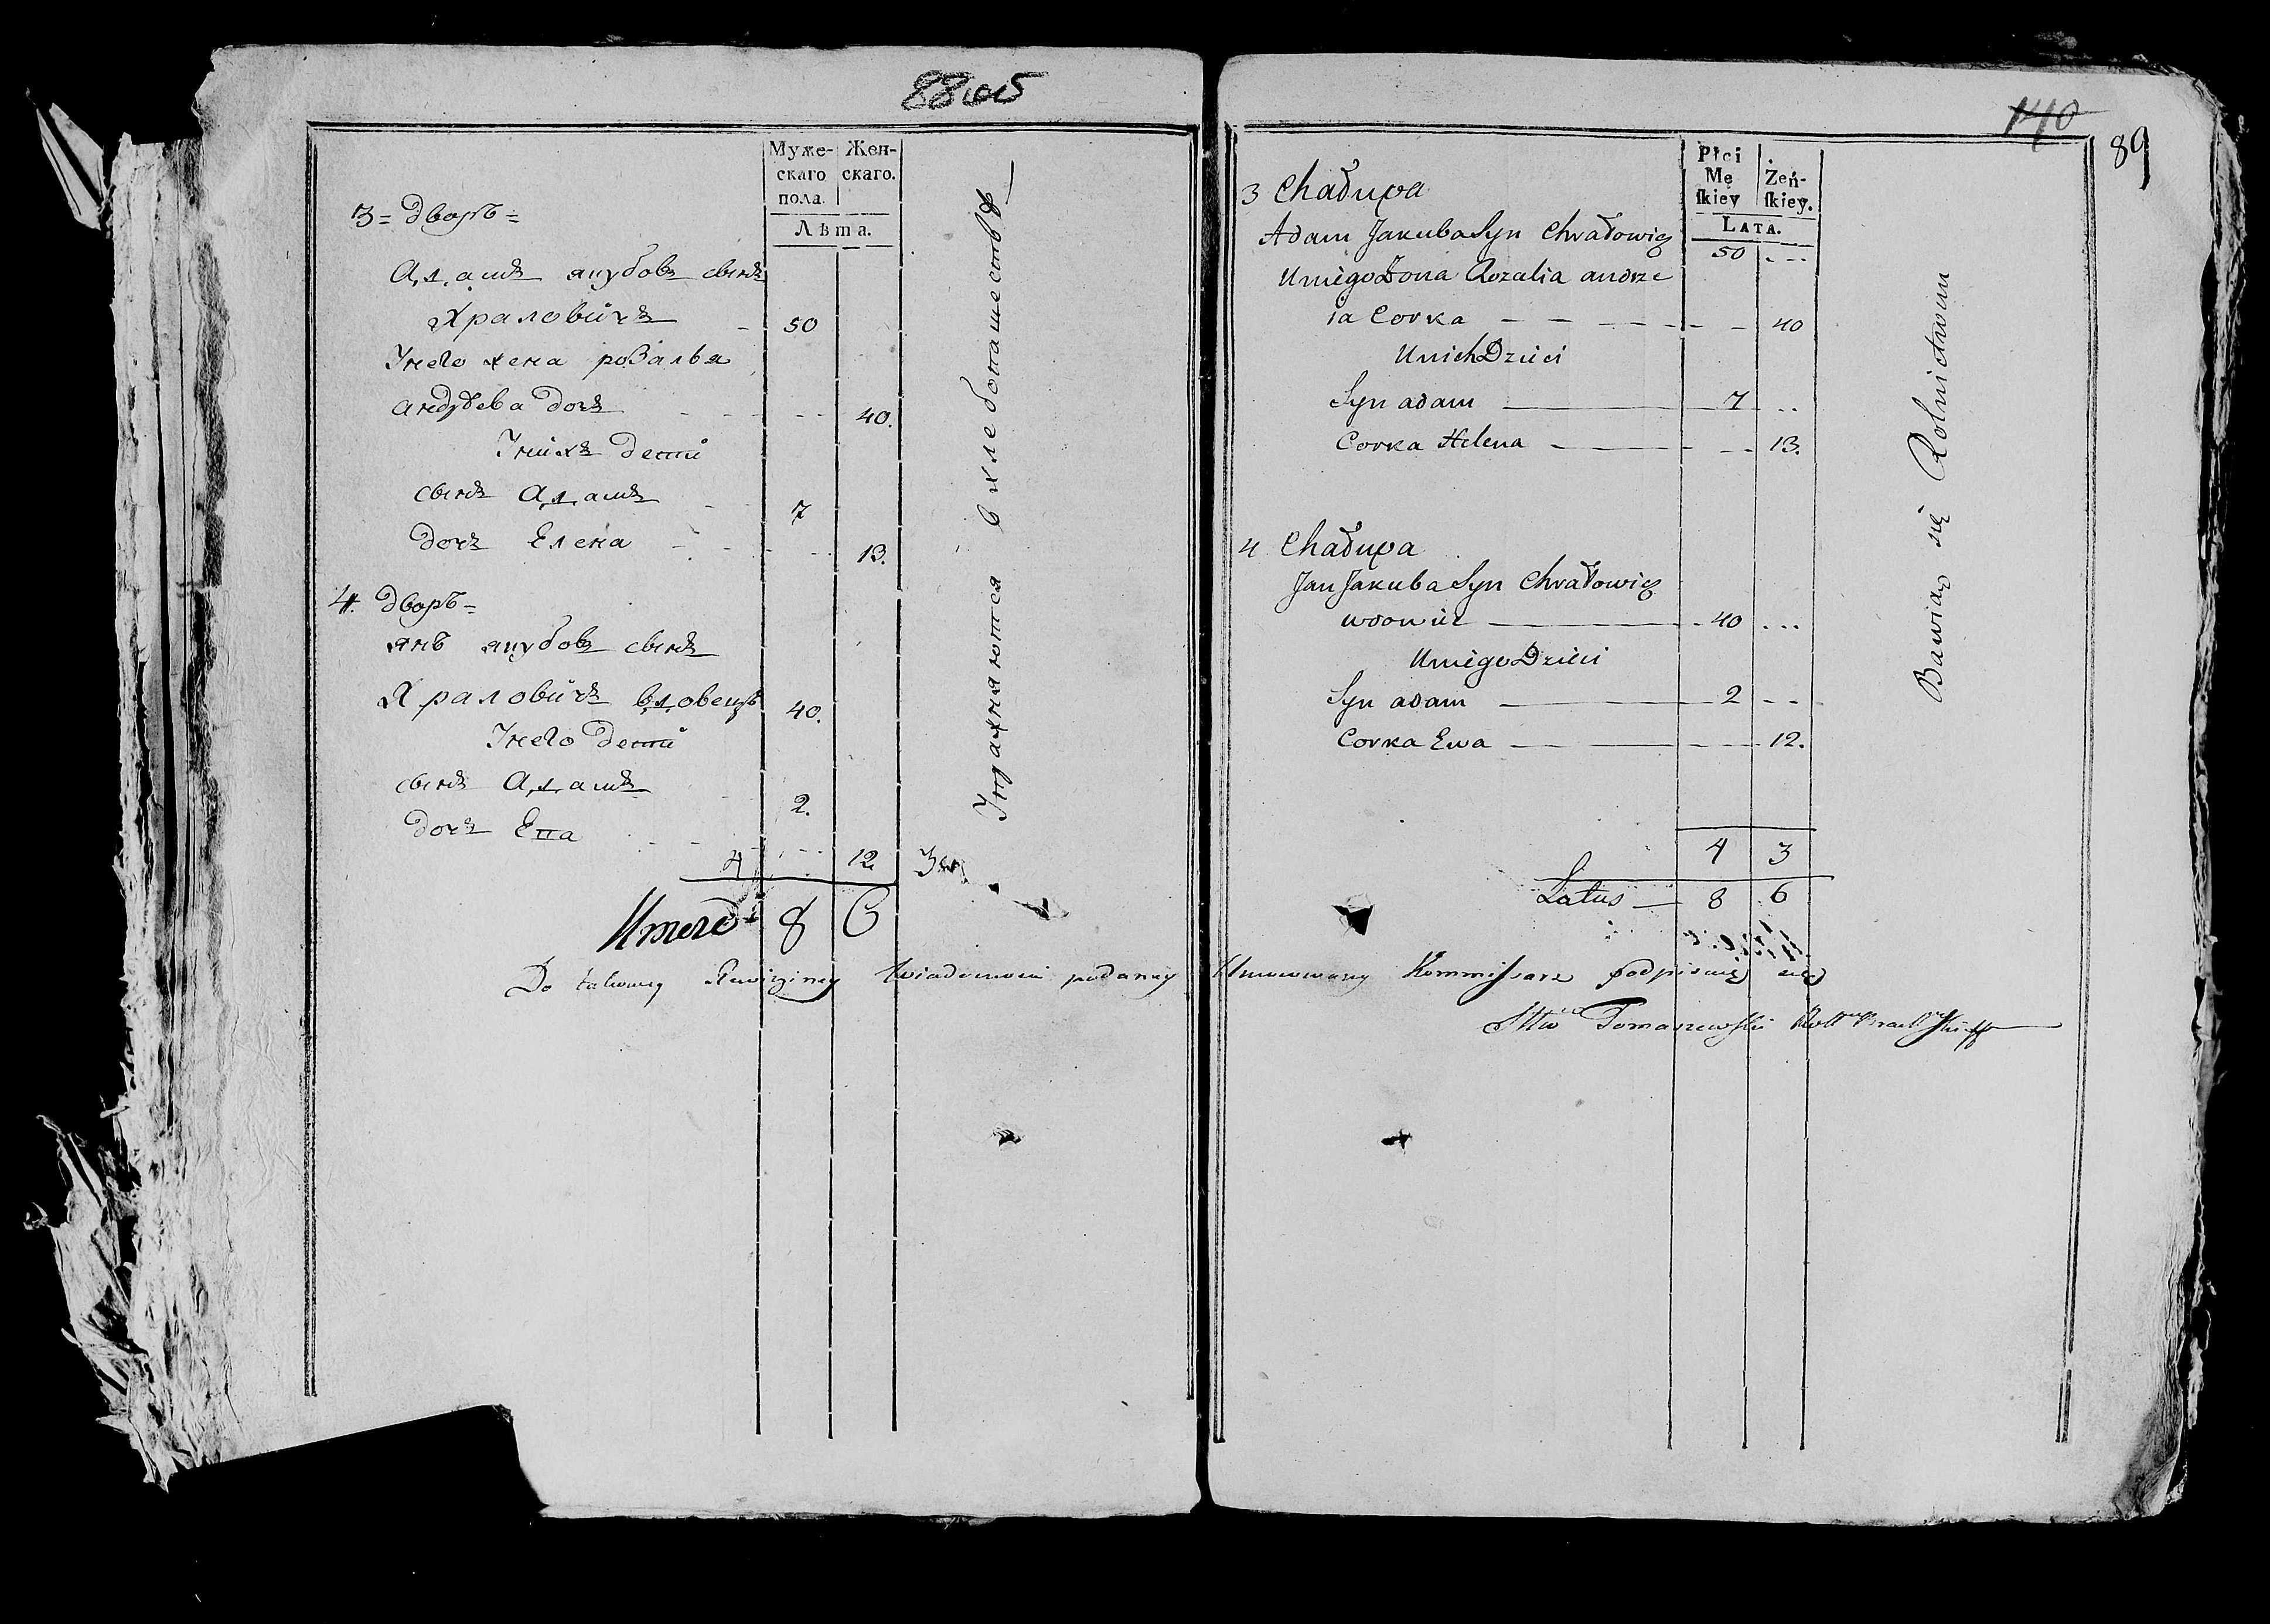 88 об
Муже-
скаго
пола.
Жен-
скаго.
Лѣта.
3 = дворъ =
Адамъ якубовъ сынъ
Храловичъ - 50
Унего жена розалья
андрѣева дочъ - - - - 40.
Унихъ дети
сынъ Адамъ - 7
дочъ Елена - - - - 13.
4. дворъ =
янъ якубовъ сынъ
Храловичъ вдовецъ 40.
Унего дети
сынъ Адамъ 2.
дочъ Ева - - - 12
4 3
Итого 8 6
Упражняются в хлебопашестве
140
89
Płci
Mę
skiey
Żeń-
skiey.
LATA.
3 Chałupa
Adam Jakuba Syn Chrałowicz 50 - - -
Uniego Żona Rozalia andrze
ia Corka - - - - - - 40
Unich Dzieci
Syn adam — 7 - -
Corka Helena — - - 13.
4 Chałupa
Jan Jakuba Syn Chrałowicz
wdowiec — 40 - - -
Uniego Dzieci
Syn adam — 2 - -
Corka Ewa — - - 12.
4 3
Latus — 8 6
Bawią się Rolnictwem
Do takowey Rewizyiney Wiadomosci podaney Umocowany Kommissarz podpisuię się
Tomaszewski